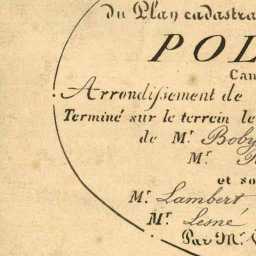 du Plan cadastra
POL
Can
Arrondissement de
Terminé sur le terrein le
de Mr. Boby
Mr.
et so
Mr. Lambert
Mr. Lesné
Par Mr.